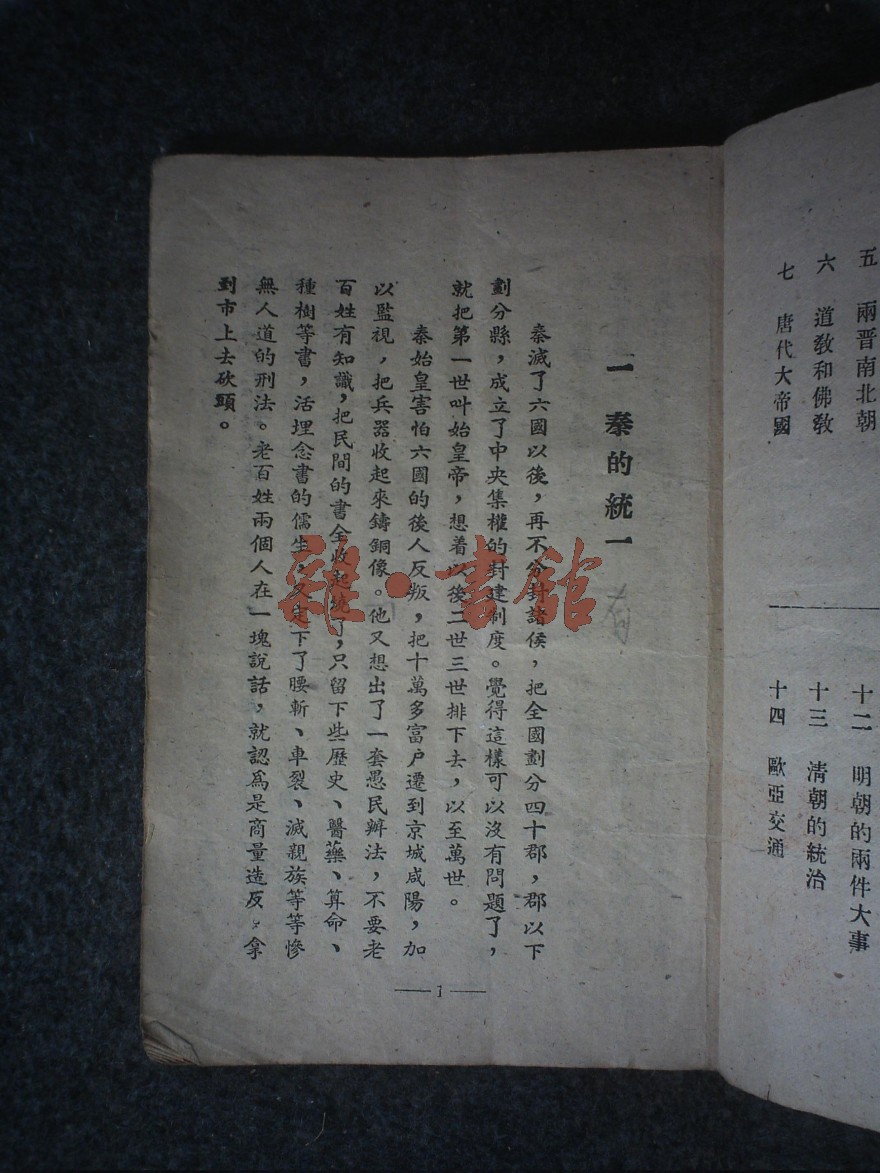 五　兩晋南北朝
六　道教和佛教
七　唐代大帝國
十二　明朝的兩件大事
十三　清朝的統治
十四　歐亞交通
一　秦的統一
有
秦滅了六國以後，再不分封諸侯，把全國劃分四十郡，郡以下
劃分縣，成立了中央集權的封建制度。覺得這樣可以沒有問題了，
就把第一世叫始皇帝，想着以後二世三世排下去，以至萬世。
秦始皇害怕六國的後人反叛，把十萬多富户遷到京城咸陽，加
以監視，把兵器收起來鑄銅像。他又想出了一套愚民辦法，不要老
百姓有知識，把民間的書全收起燒了，只留下些歷史、醫藥、算命、
種樹等書，活埋念書的儒生，又定下了腰斬、車裂、滅親族等等慘
無人道的刑法。老百姓兩個人在一塊說話，就認爲是商量造反，拿
到市上去砍頭。
1
雜·書館